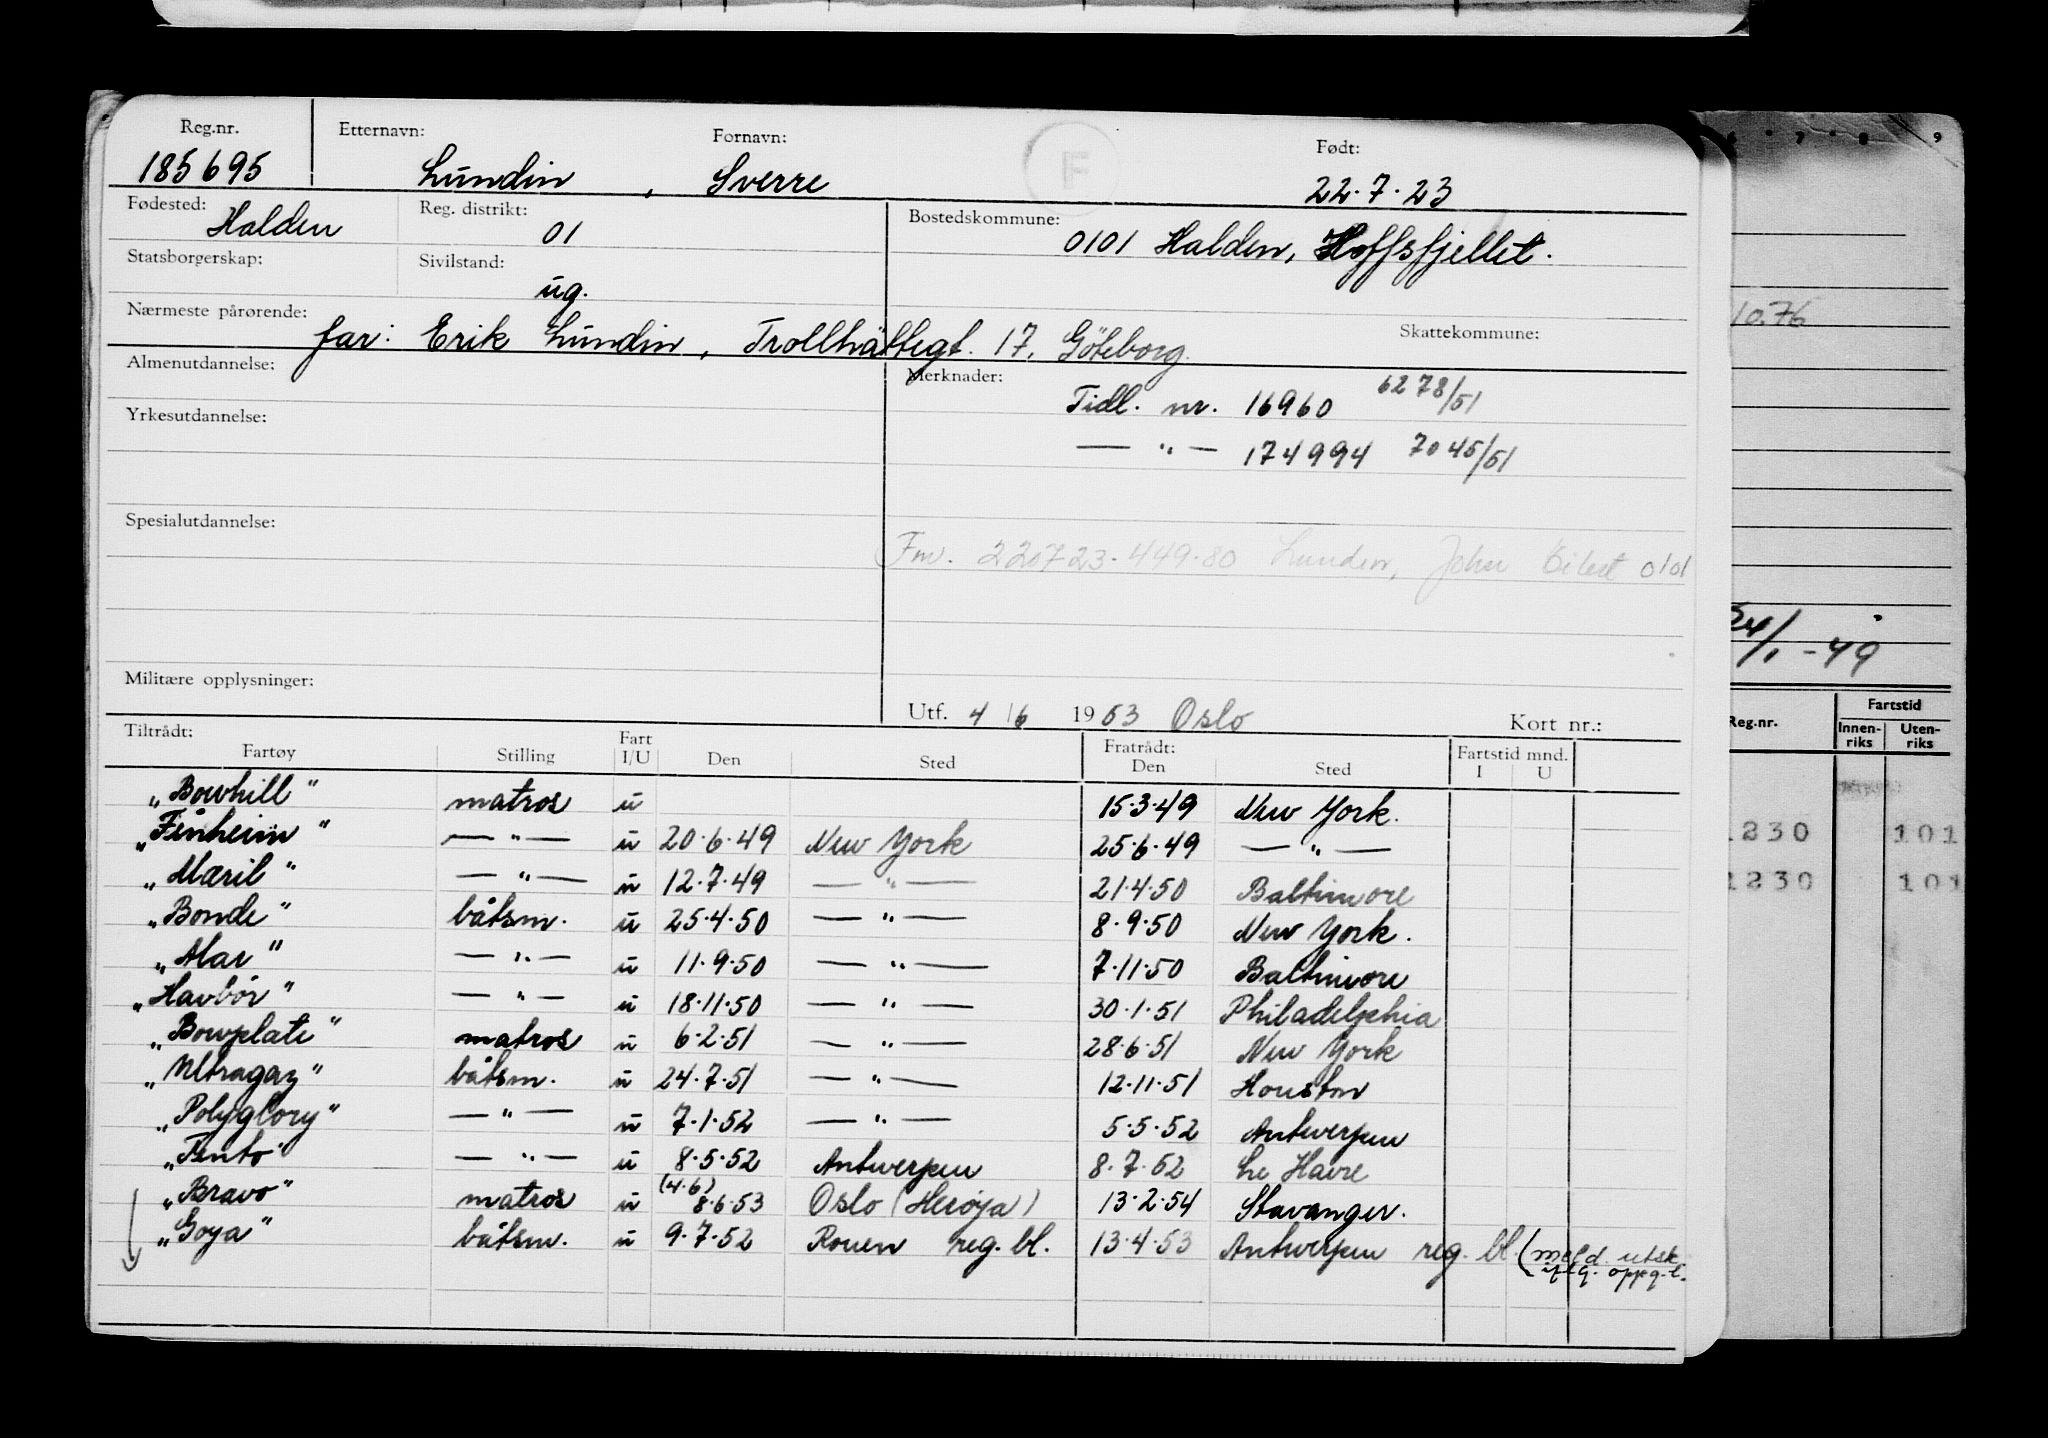 Reg.nr. Etternavn: Fornavn: F Født:
185695 Lundin, Sverre 22.7.23
Fødested: Halden Reg. distrikt: 01 Bostedskommune: 0101 Halden, Hoffsfjellet.
Statsborgerskap: Sivilstand: ug.
Nærmeste pårørende: far: Erik Lundin, Trollhättegt. 17, Göteborg. Skattekommune:
Almenutdannelse: Merknader: Tidl. nr. 16960 6278/51
Yrkesutdannelse: — " — 174994 7045/51
Spesialutdannelse:
Fnr. 220723-449.80 Lunden, John 0101
Militære opplysninger:
Utf. 4/6 1953 Oslo Kort nr.:
Tiltrådt: Fratrådt:
Fartøy Stilling Fart I/U Den Sted Den Sted Fartstid mnd. I U
"Bowhill" matros u 15.3.49 New York.
"Finheim" — " — u 20.6.49 New York 25.6.49 — " —
"Mæril" — " — u 12.7.49 — " — 21.4.50 Baltimore
"Bonde" båtsm. u 25.4.50 — " — 8.9.50 New York.
"Mar" — " — u 11.9.50 — " — 7.11.50 Baltimore
"Havbör" — " — u 18.11.50 — " — 30.1.51 Philadelphia
"Bowplate" matros u 6.2.51 — " — 28.6.51 New York
"Ultragaz" båtsm. u 24.7.51 — " — 12.11.51 Houston
"Polyglory" — " — u 7.1.52 — " — 5.5.52 Antwerpen
"Tento" — " — u 8.5.52 Antwerpen 8.7.52 Le Havre
"Bravo" matros u (4.6) 8.6.53 Oslo (Herøya) 13.2.54 Stavanger.
"Goya" båtsm. u 9.7.52 Rouen reg. bl. 13.4.53 Antwerpen reg. bl. (meld. utsk. iflg. oppg.
6 7 8 9
10.76
24/1-49
Reg.nr. Fartstid
Innen-riks Uten-riks
1230 101
1230 101